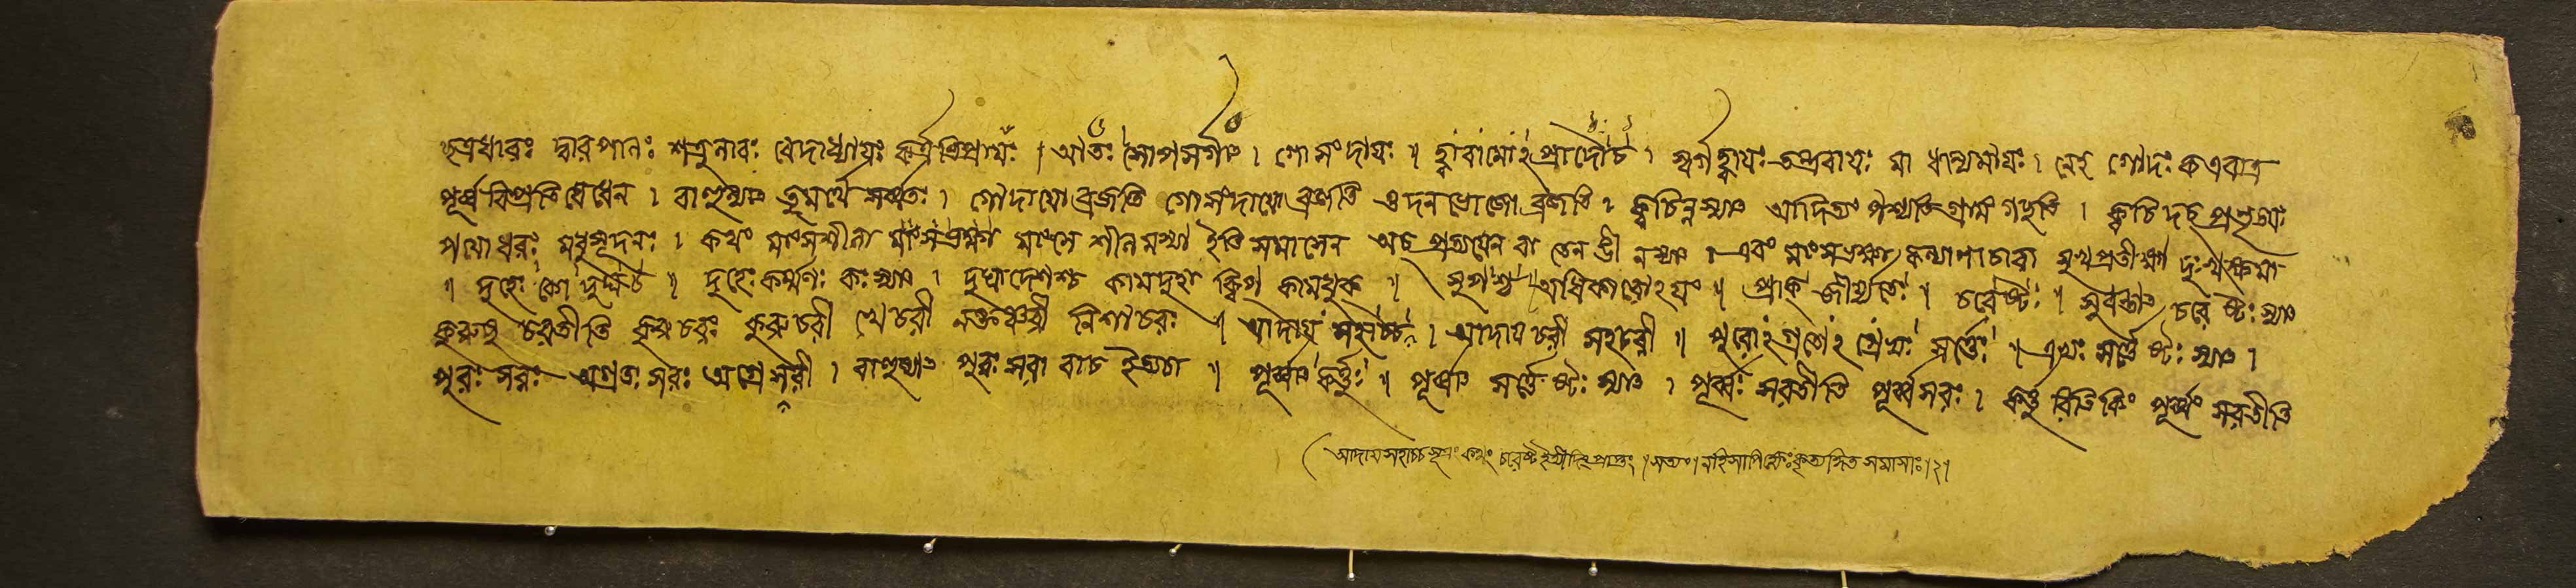 সূত্রধারঃ দ্বারপালঃ শত্রুলাবঃ বেদাধ্যায়ঃ কর্ত্রভিপ্রায়ঃ । আতঃ সোপসর্গাৎ । গোসংদায়ঃ ॥ হ্বাবামোঽপ্রাদৌচ । স্বর্গহ্বায়ঃ তন্ত্রবায়ঃ মা ধান্যমায়ঃ । নেহ গোদঃ কএবাত্র
পূর্ব্ববিপ্রতিষেধেন । বাণুস্যাৎ তুমর্থে সর্ব্বতঃ । গোদায়ো ব্রজতি গোসংদায়ো ব্রজতি ওদনভোজো ব্রজতি । ক্বচিন্নস্যাৎ আদিত্যং পশ্যতি গ্রামং গচ্ছতি । ক্বচিদচ্ প্রভৃতয়ঃ
পয়োধরঃ মধুসূদনঃ । কথং মাংসশীলা মাংসভক্ষা মাংসে শীলমস্যা ইতি সমাসেন অচ্ প্রত্যয়েন বা তেন ঙী নস্যাৎ । এবং মাংসভক্ষা কল্যাণাচারা সুখপ্রতীক্ষা দুঃখক্ষমা
। দুহেঃ কো দুঘশ্চ ॥ দুহেঃ কর্ম্মণঃ কঃ স্যাৎ । দুঘাদেশশ্চ কামদুঘা ক্বিপ্ কামধুক্ ॥ সুপশ্চ ॥ অধিকারোঽয়ং ॥ প্রাক্ জীর্য্যতেঃ ॥ চরেষ্টঃ ॥ সুবন্তাৎ চরে ষ্টঃ স্যাৎ
কুরুষু চরতীতি কুরুচরঃ কুরুচরী খেচরী নক্তঞ্চরী নিশাচরঃ ॥ আদায় সহাচ্চ । আদায়চরী সহচরী ॥ পুরোঽগ্রতোঽগ্রেভ্যঃ সর্ত্তেঃ ॥ এভ্যঃ সর্ত্তে ষ্টঃ স্যাৎ ।
পুরঃসরঃ অগ্রতঃসরঃ অগ্রেসরী । বাণুস্যাৎ পুরঃসরা বাচ ইত্যচা ॥ পূর্ব্বাৎ কর্ত্তুঃ ॥ পূর্ব্বাৎ সর্ত্তেষ্টঃ স্যাৎ । পূর্ব্বঃ সরতীতি পূর্ব্বসরঃ । কর্ত্তু রিতি কিং পূর্ব্বং সরতীতি
আদায়সহাচ্চসূত্রং কথং চরেষ্ট ইত্যাদি প্রাপ্তং । সত্যং । নহি সাপি